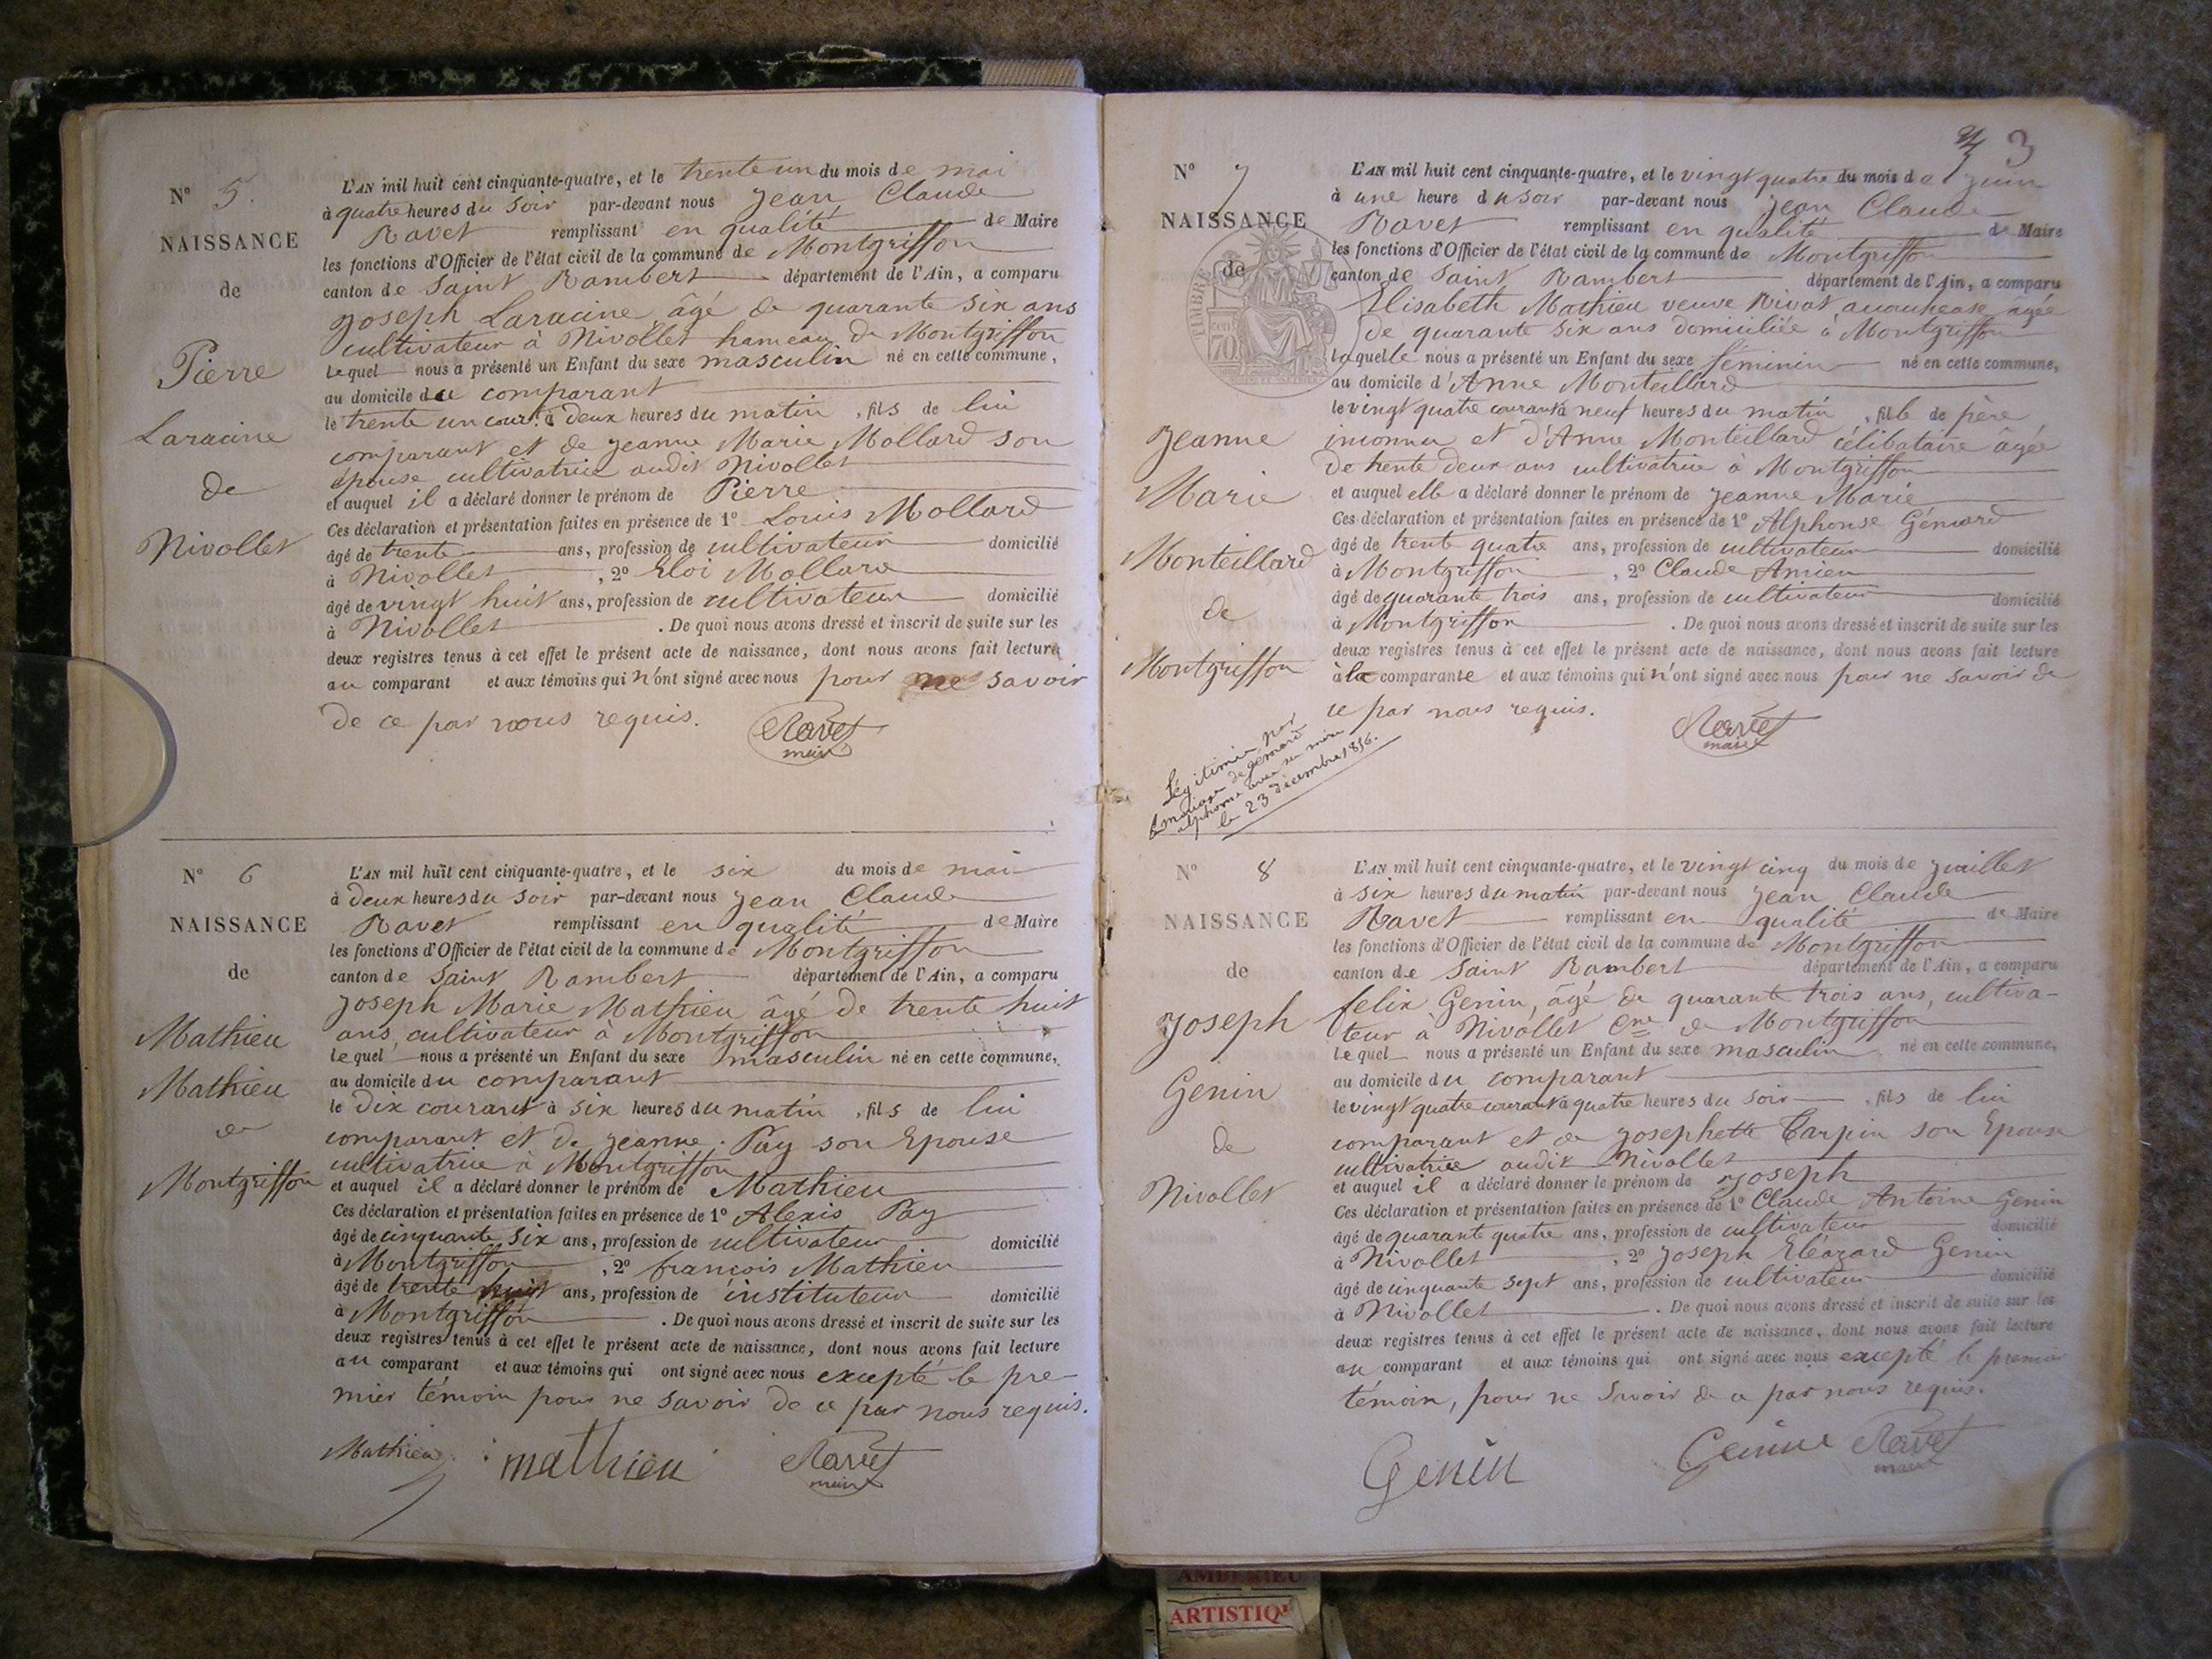 N° 5.
NAISSANCE
de
Pierre
Laracine
de
Nivollet
L'AN mil huit cent cinquante-quatre, et le trente un du mois de mai
à quatre heures du soir par-devant nous Jean Claude
Ravet remplissant en qualité de Maire
les fonctions d'Officier de l'état civil de la commune de Montgriffon
canton de Saint Rambert département de l'Ain, a comparu
Joseph Laracine âgé de quarante six ans
cultivateur à Nivollet hameau de Montgriffon
Lequel nous a présenté un Enfant du sexe masculin né en cette commune,
au domicile du comparant
le trente un cour.t à deux heures du matin, fils de lui
comparant et de Jeanne Marie Mollard son
épouse cultivatrice audit Nivollet
et auquel il a déclaré donner le prénom de Pierre
Ces déclaration et présentation faites en présence de 1° Louis Mollard
âgé de trente ans, profession de cultivateur domicilié
à Nivollet, 2° Eloi Mollard
âgé de vingt huit ans, profession de cultivateur domicilié
à Nivollet. De quoi nous avons dressé et inscrit de suite sur les
deux registres tenus à cet effet le présent acte de naissance, dont nous avons fait lecture
au comparant et aux témoins qui n'ont signé avec nous pour ne savoir
de ce par nous requis.
Ravet
maire
N° 6
NAISSANCE
de
Mathieu
Mathieu
de
Montgriffon
L'AN mil huit cent cinquante-quatre, et le six du mois de mai
à deux heures du soir par-devant nous Jean Claude
Ravet remplissant en qualité de Maire
les fonctions d'Officier de l'état civil de la commune de Montgriffon
canton de Saint Rambert département de l'Ain, a comparu
Joseph Marie Mathieu âgé de trente huit
ans, cultivateur à Montgriffon
Lequel nous a présenté un Enfant du sexe masculin né en cette commune,
au domicile du comparant
le dix courant à six heures du matin, fils de lui
comparant et de Jeanne Pay son Epouse
cultivatrice à Montgriffon
et auquel il a déclaré donner le prénom de Mathieu
Ces déclaration et présentation faites en présence de 1° Alexis Pay
âgé de cinquante six ans, profession de cultivateur domicilié
à Montgriffon, 2° francois Mathieu
âgé de trente huit ans, profession de instituteur domicilié
à Montgriffon. De quoi nous avons dressé et inscrit de suite sur les
deux registres tenus à cet effet le présent acte de naissance, dont nous avons fait lecture
au comparant et aux témoins qui ont signé avec nous excepté le pre-
mier témoin pour ne savoir de ce par nous requis.
Mathieu mathieu Ravet
maire
3
N° 7
NAISSANCE
de
Jeanne
Marie
Monteillard
de
Montgriffon
TIMBRE
70
L'AN mil huit cent cinquante-quatre, et le vingt quatre du mois de Juin
à une heure du soir par-devant nous Jean Claude
Ravet remplissant en qualité de Maire
les fonctions d'Officier de l'état civil de la commune de Montgriffon
canton de Saint Rambert département de l'Ain, a comparu
Elisabeth Mathieu veuve Rivat accoucheuse âgée
de quarante six ans domiciliée à Montgriffon
Laquelle nous a présenté un Enfant du sexe féminin né en cette commune,
au domicile d'Anne Monteillard
le vingt quatre courant à neuf heures du matin, fille de père
inconnu et d'Anne Monteillard célibataire âgée
de trente deux ans cultivatrice à Montgriffon
et auquel elle a déclaré donner le prénom de Jeanne Marie
Ces déclaration et présentation faites en présence de 1° Alphonse Gémard
âgé de trente quatre ans, profession de cultivateur domicilié
à Montgriffon, 2° Claude Amieu
âgé de quarante trois ans, profession de cultivateur domicilié
à Montgriffon. De quoi nous avons dressé et inscrit de suite sur les
deux registres tenus à cet effet le présent acte de naissance, dont nous avons fait lecture
à la comparante et aux témoins qui n'ont signé avec nous pour ne savoir de
ce par nous requis.
Ravet
maire
Légitimée par
le mariage de gemard
alphonse avec sa mère
le 23 décembre 1856.
N° 8
NAISSANCE
de
Joseph
Genin
de
Nivollet
L'AN mil huit cent cinquante-quatre, et le vingt cinq du mois de Juillet
à six heures du matin par-devant nous Jean Claude
Ravet remplissant en qualité de Maire
les fonctions d'Officier de l'état civil de la commune de Montgriffon
canton de Saint Rambert département de l'Ain, a comparu
felix Genin, âgé de quarante trois ans, cultiva-
teur à Nivollet Cne de Montgriffon
Lequel nous a présenté un Enfant du sexe masculin né en cette commune,
au domicile du comparant
le vingt quatre courant à quatre heures du soir, fils de lui
comparant et de Josephette Carpin son Epouse
cultivatrice audit Nivollet
et auquel il a déclaré donner le prénom de Joseph
Ces déclaration et présentation faites en présence de 1° Claude Antoine Genin
âgé de quarante quatre ans, profession de cultivateur domicilié
à Nivollet, 2° Joseph Eléazard Genin
âgé de cinquante sept ans, profession de cultivateur domicilié
à Nivollet. De quoi nous avons dressé et inscrit de suite sur les
deux registres tenus à cet effet le présent acte de naissance, dont nous avons fait lecture
au comparant et aux témoins qui ont signé avec nous excepté le premier
témoin, pour ne savoir de ce par nous requis.
Genin Genin Ravet
maire
AMBERIEU
ARTISTIQU